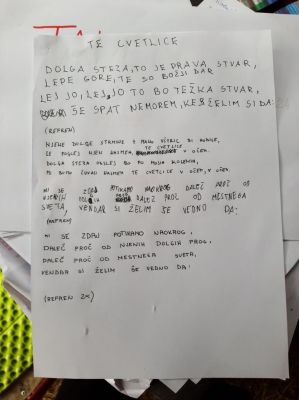 TE CVETLICE
DOLGA STEZA, TO JE PRAVA STVAR,
LEPE GORE, TE SO BOŽJI DAR
LEJ JO, LEJ JO TO BO TEŽKA STVAR,
ŠE SPAT NEMOREM, KER ŽELIM SI DA:
(REFREN)
NJENE DOLGE STRMINE + MALO VŠTRIC SI HODILE,
TE CVETLICE
SE POGLEJ NJEN NASMEH, V OČEH.
DOLGA STEZA OKLEJ BO PO MOJIH KOLENIH,
PA BOMO ČUVAL NASMEH TE CVETLICE V OČEH, V OČEH.
MI SE ZDAJ POTIKAMO NAOKROG DALEČ PROČ OD
NJENIH DOLGIH PROG DALEČ PROČ OD MESTNEGA
SVETA, VENDAR SI ŽELIM ŠE VEDNO DA:
(REFREN)
MI SE ZDAJ POTIKAMO NAOKROG,
DALEČ PROČ OD NJENIH DOLGIH PROG,
DALEČ PROČ OD MESTNEGA SVETA,
VENDAR SI ŽELIM ŠE VEDNO DA:
(REFREN 2X)